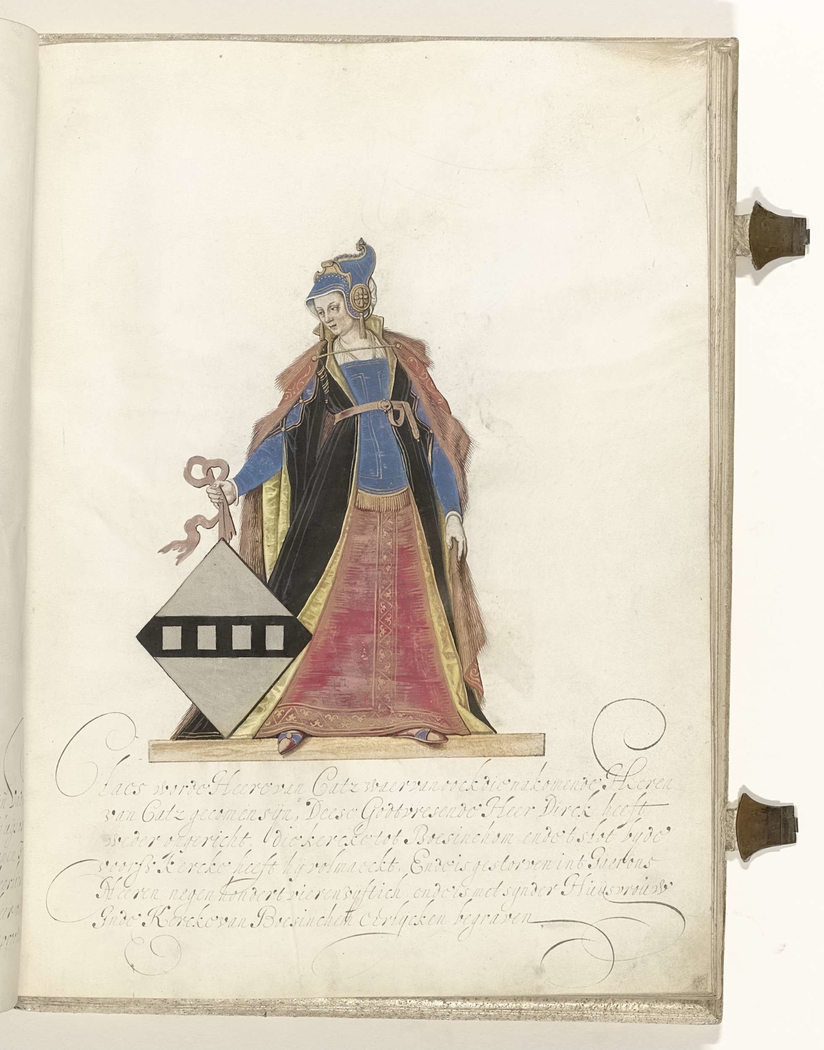 Claes worde Heere van Catz waer van oock die nakomende Heeren
van Catz gecomen syn, Deese Godtvresende Heer Dirck heeft
weder opgericht, die kercke tot Boesinchem ende t slot byde
voorss Kercke heeft hy volmaeckt, Ende is gestorven int Jaer ons
Heeren negen hondert vieren vyftich, ende is met synder Huysvrouw
Inde Kercke van Boesinchem begraven